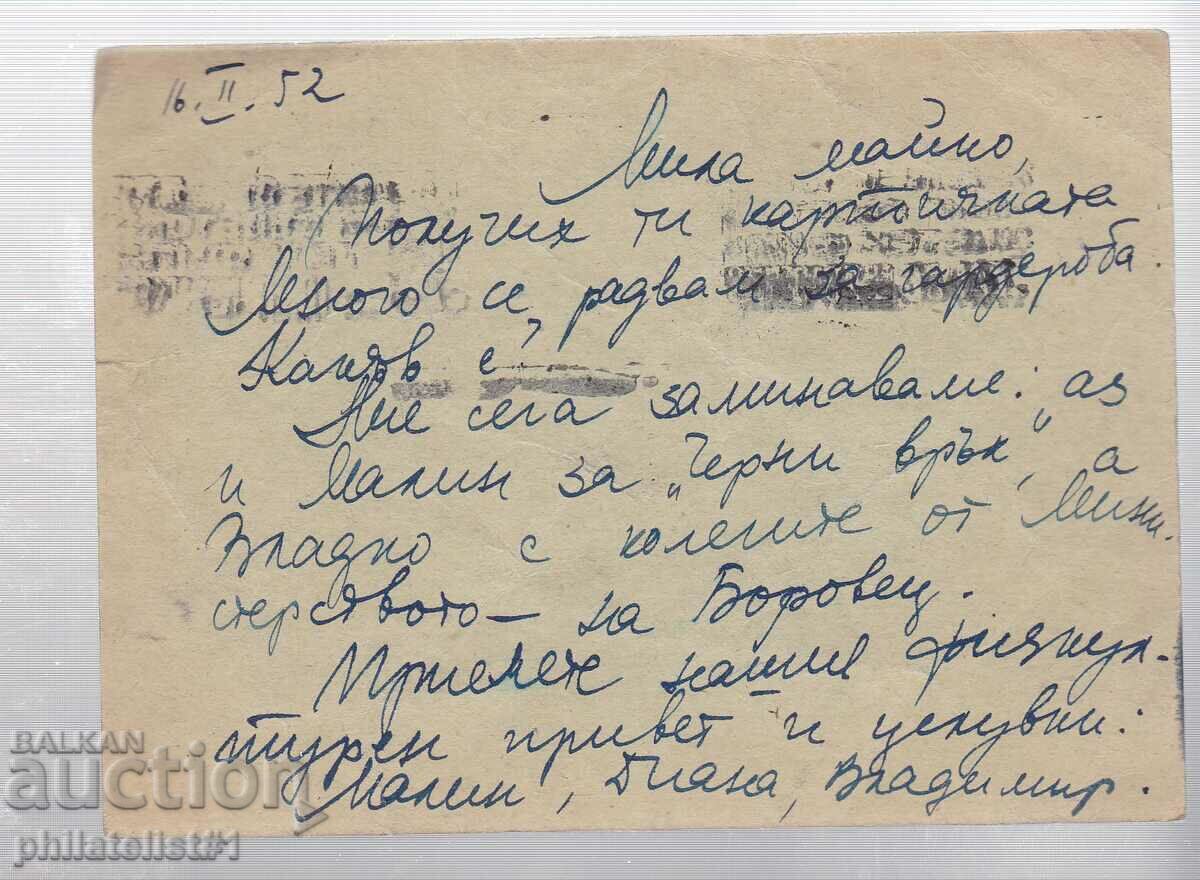 16.II.52
Мила майко,
Получих ти картичката
Много се радвам за гардероба.
Какъв е?
Ние сега заминаваме: аз
и Малин за „Черни връх", а
Владко с колегите от Мини-
стерството – на Боровец.
Приемете нашия физкул-
турен привет и целувки:
Малин, Диана, Владимир.
BALKAN
auction
philatelist#1